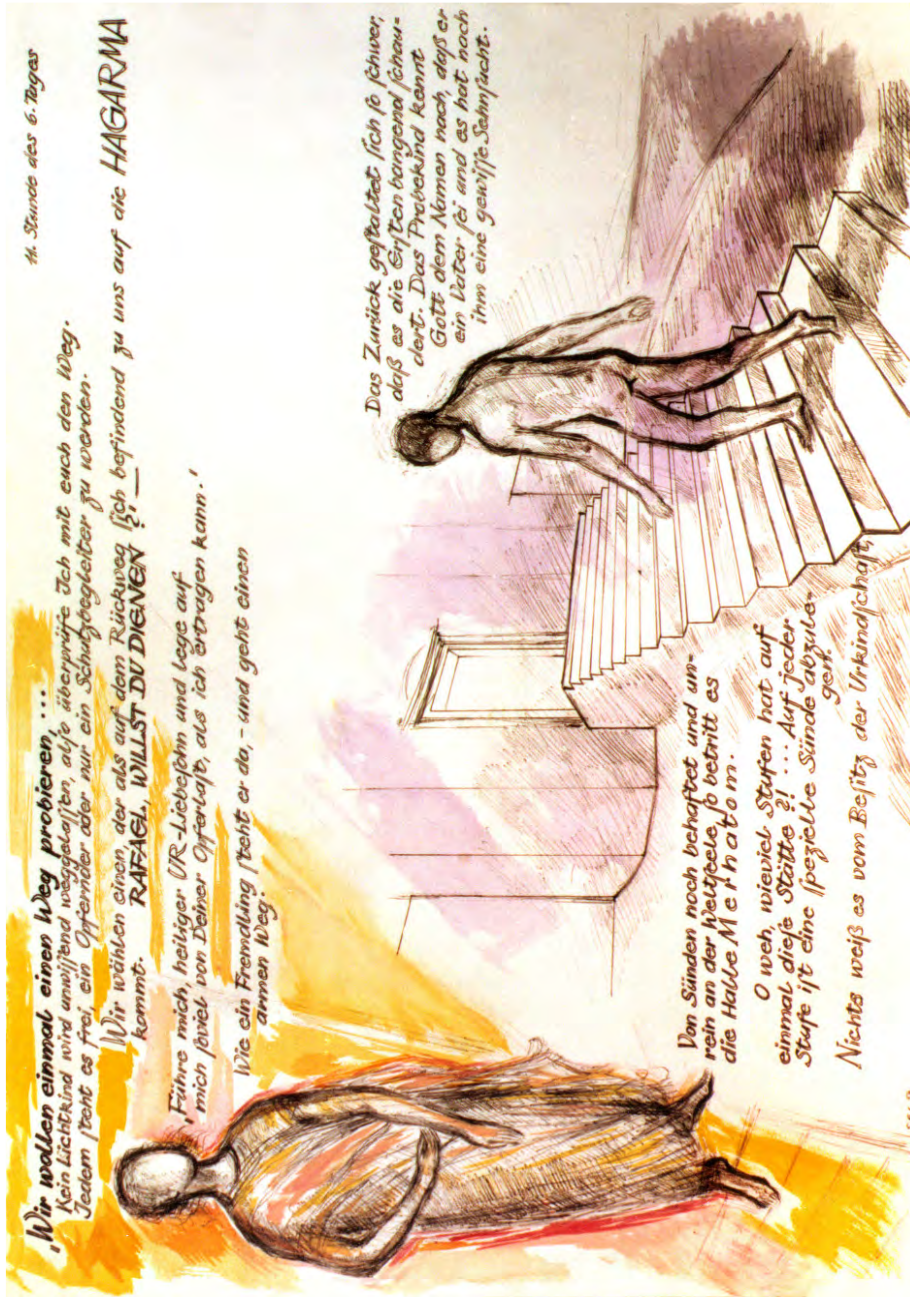 11. Stunde des 6. Tages
„Wir wollen einmal einen Weg probieren, ...
Kein Lichtkind wird unwissend weggelassen, also überprüfe Ich mit euch den Weg.
Jedem steht es frei, ein Opfernder oder nur ein Schutzbegleiter zu werden.
Wir wählen einen, der als auf dem Rückweg sich befindend zu uns auf die HAGARMA
kommt. RAFAEL, WILLST DU DIENEN ?! —
'Führe mich, heiliger UR-Liebeſohn und lege auf
mich soviel von Deiner Opferlaſt, als ich ertragen kann.'
Wie ein Fremdling ſteht er da, – und geht einen
Weg:
Das Zurück geſtaltet ſich ſo ſchwer,
daß es die Erſten bangend ſchau-
dert. Das Probekind kennt
Gott dem Namen nach, daß er
ein Vater ſei und es hat nach
ihm eine gewiſſe Sehnſucht.
Von Sünden noch behaftet und un-
rein an der Weltſeele, ſo betritt es
die Halbe Merhatom.
O weh, wieviel Stufen hat auf
einmal dieſe Stätte ?! ... Auf jeder
Stufe iſt eine ſpezielle Sünde abzule-
gen.
Nichts weiß es vom Beſitz der Urkindſchaft,